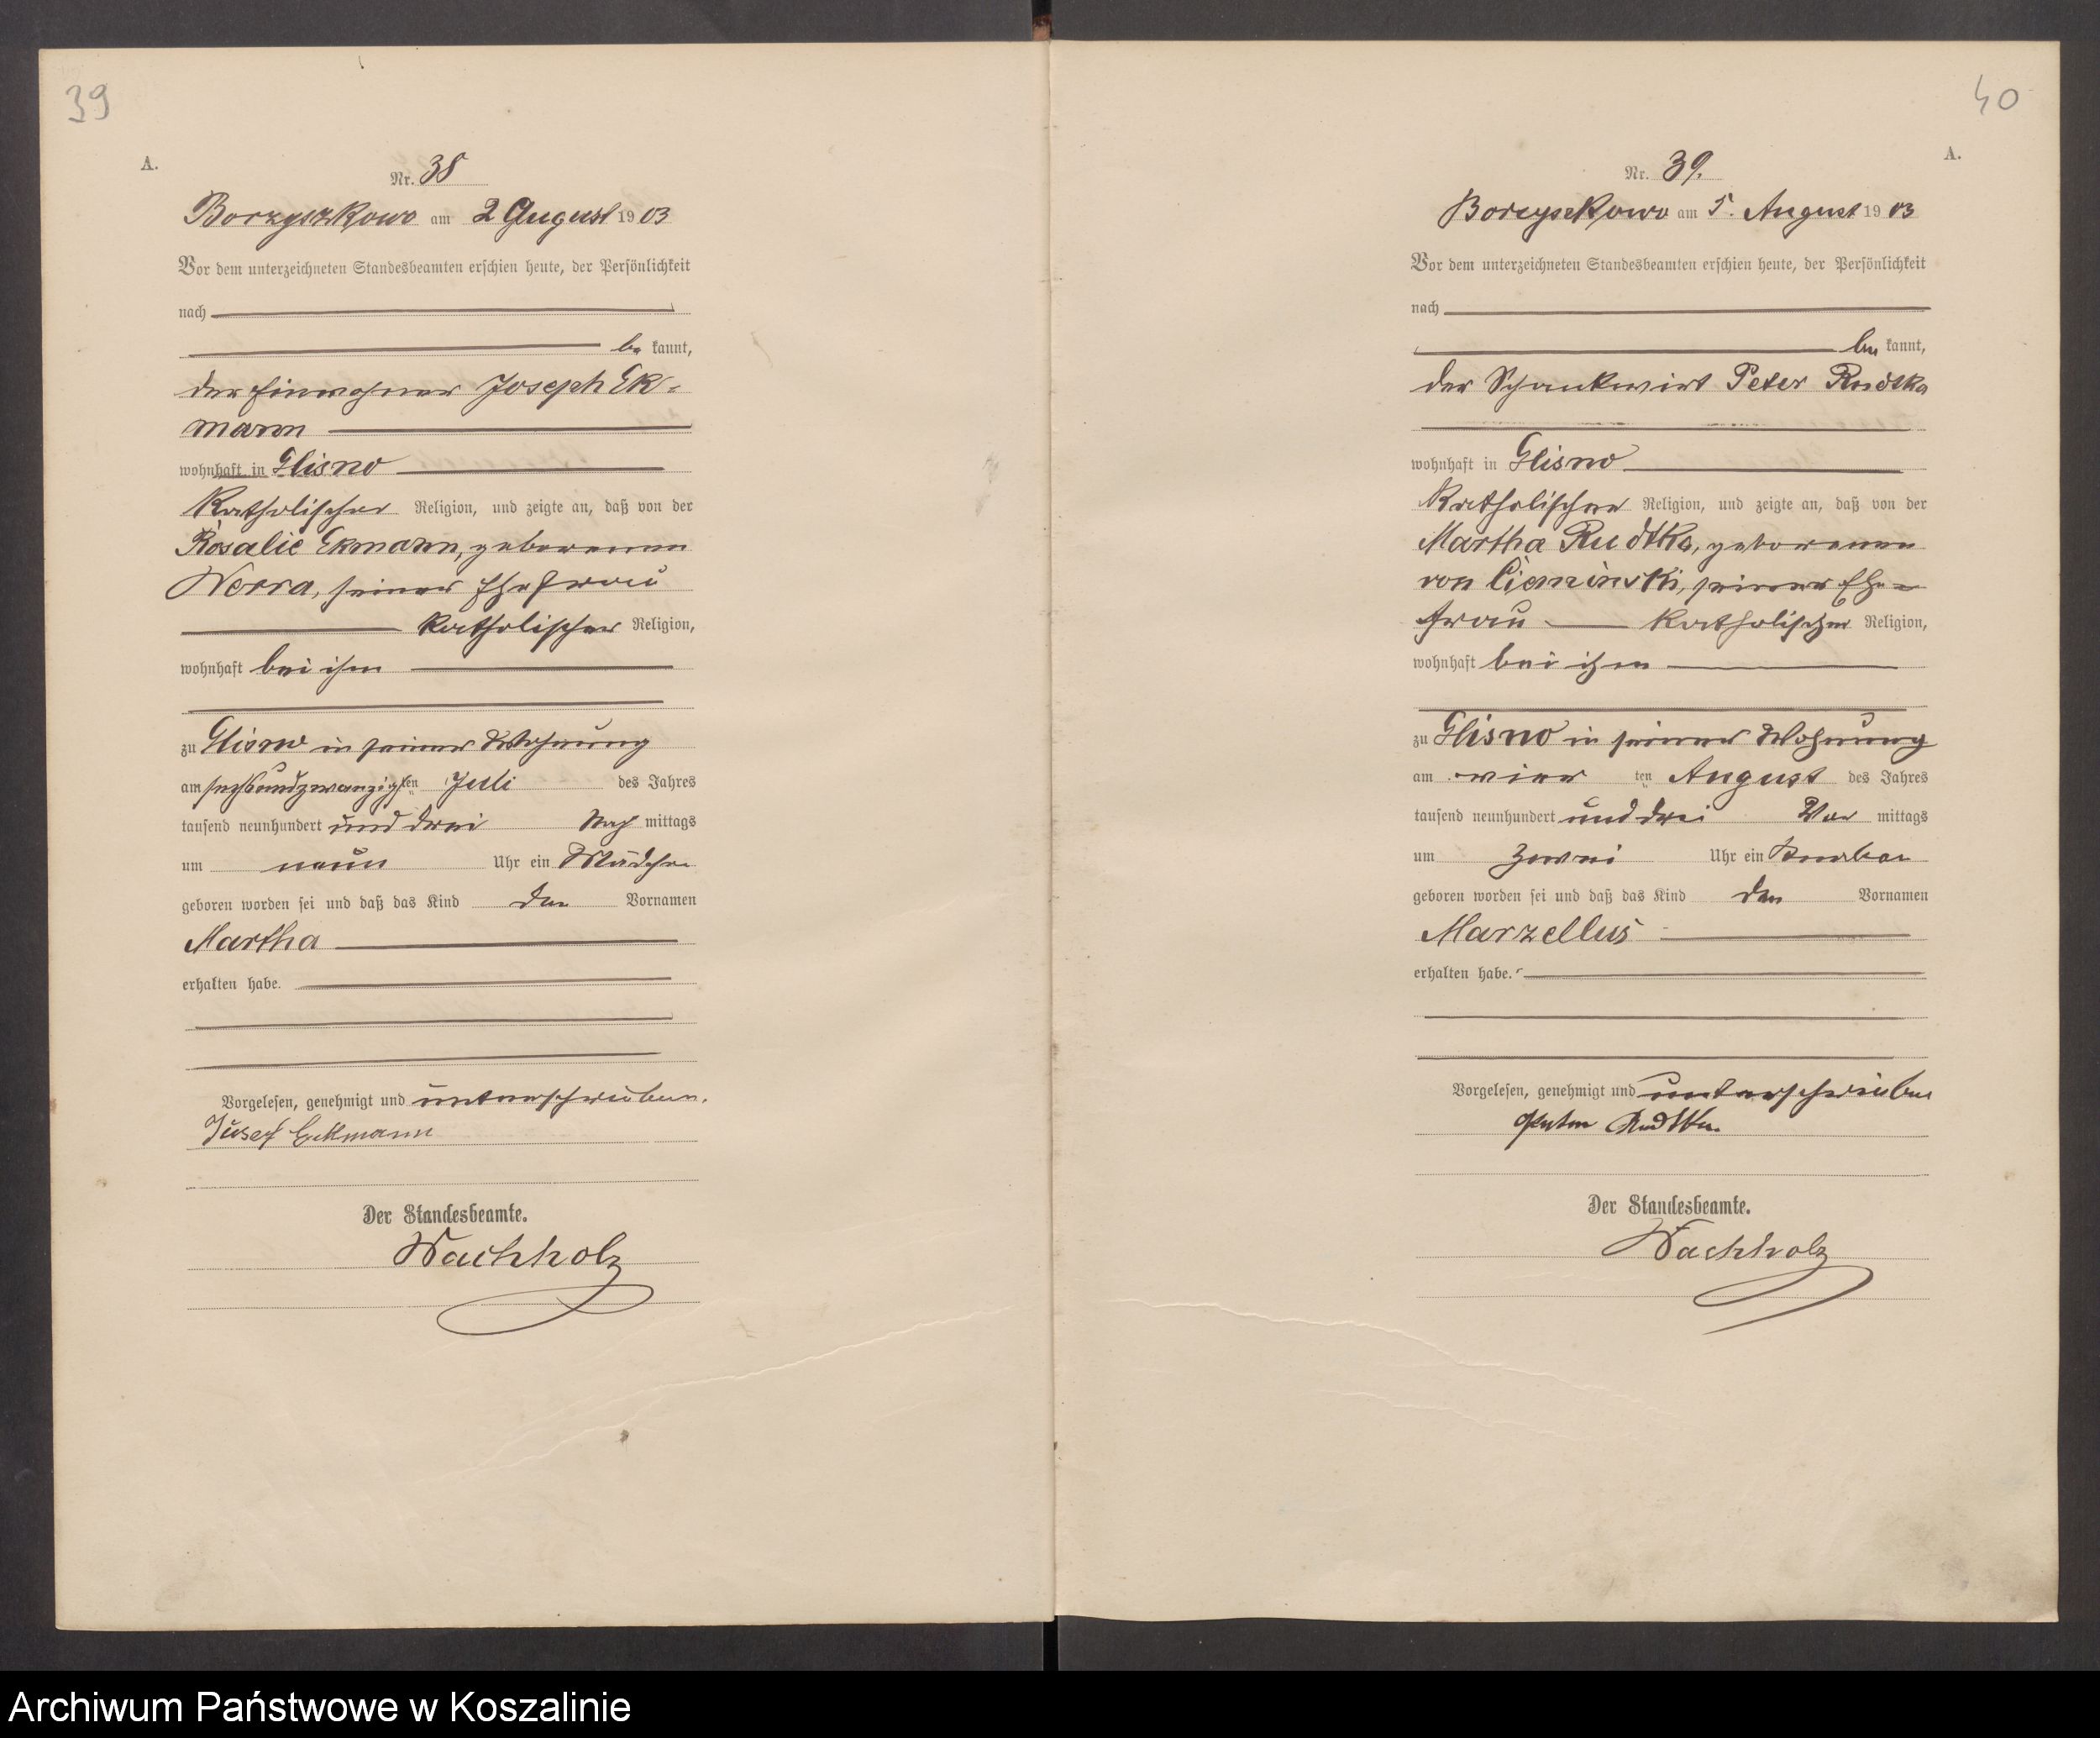 39
A.
Nr. 38
Borzyszkowo am 2 August 1903
Vor dem unterzeichneten Standesbeamten erschien heute, der Persönlichkeit
nach
be kannt,
der Einwohner Joseph Ek=
mann
wohnhaft in Glisno
katholischer Religion, und zeigte an, daß von der
Rosalie Ekmann, geborenen
Werra, seiner Ehefrau
katholischer Religion,
wohnhaft bei ihm
zu Glisno in seiner Wohnung
am sechsundzwanzigsten Juli des Jahres
tausend neunhundert und drei Nach mittags
um neun Uhr ein Mädchen
geboren worden sei und daß das Kind den Vornamen
Martha
erhalten habe.
Vorgelesen, genehmigt und unterschrieben.
Jusef Eckmann
Der Standesbeamte.
Wachholz
40
A.
Nr. 39.
Borzyszkowo am 5. August 1903
Vor dem unterzeichneten Standesbeamten erschien heute, der Persönlichkeit
nach
be kannt,
der Schankwirt Peter Rudtka
wohnhaft in Glisno
katholischer Religion, und zeigte an, daß von der
Martha Rudtka, geborenen
von Cieminski, seiner Ehe=
frau katholischer Religion,
wohnhaft bei ihm
zu Glisno in seiner Wohnung
am vier ten August des Jahres
tausend neunhundert und drei Vor mittags
um zwei Uhr ein Knabe
geboren worden sei und daß das Kind den Vornamen
Marzellus
erhalten habe.
Vorgelesen, genehmigt und unterschrieben
Peter Rudtka
Der Standesbeamte.
Wachholz
Archiwum Państwowe w Koszalinie